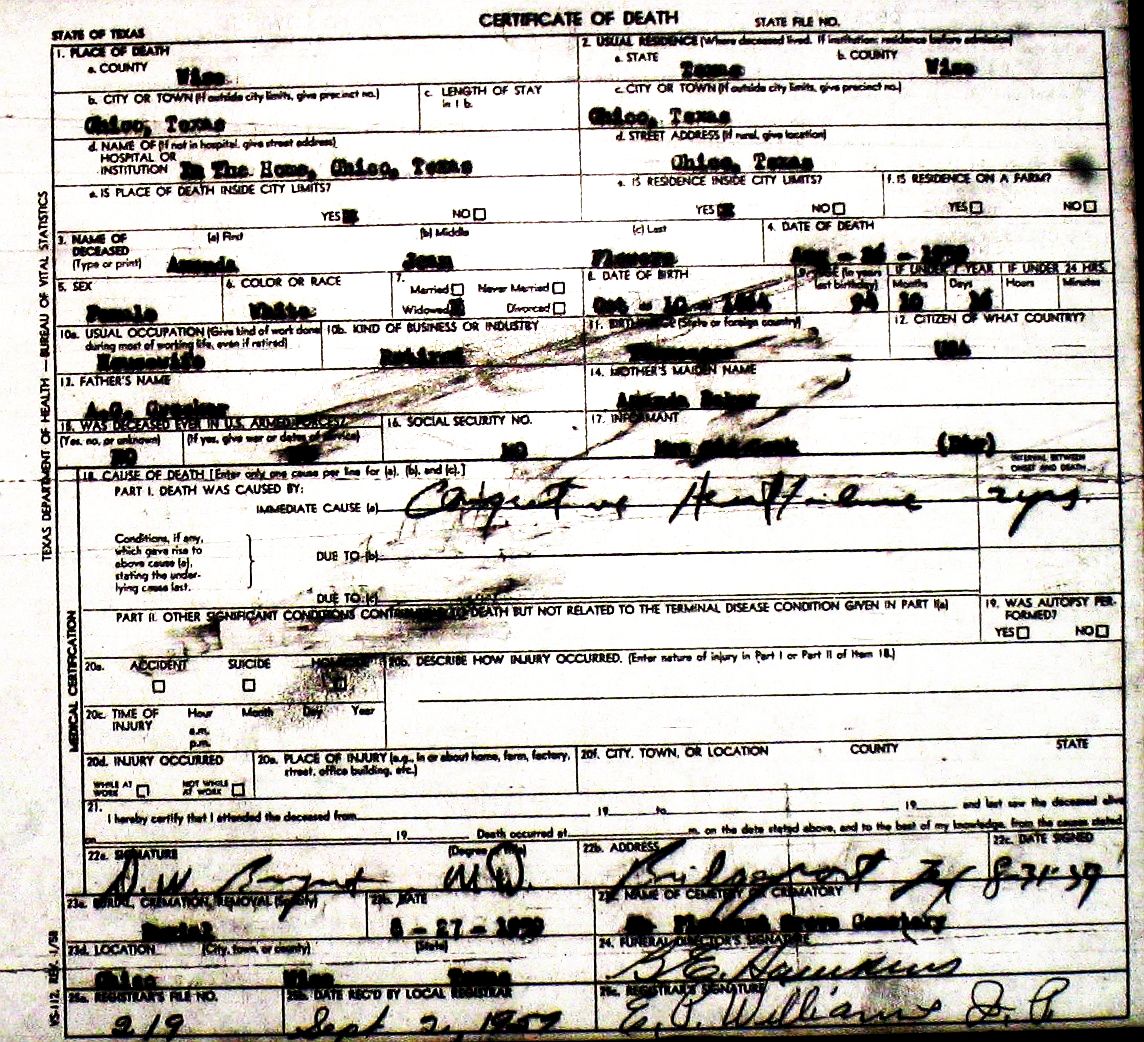 CERTIFICATE OF DEATH
STATE FILE NO.
STATE OF TEXAS
1. PLACE OF DEATH
a. COUNTY
Wise
2. USUAL RESIDENCE (Where deceased lived. If institution: residence before admission)
a. STATE
Texas
b. COUNTY
Wise
b. CITY OR TOWN (If outside city limits, give precinct no.)
Chico, Texas
c. LENGTH OF STAY
in 1 b.
c. CITY OR TOWN (If outside city limits, give precinct no.)
Chico, Texas
d. NAME OF (If not in hospital, give street address)
HOSPITAL OR
INSTITUTION In The Home, Chico, Texas
d. STREET ADDRESS (If rural, give location)
Chico, Texas
e. IS PLACE OF DEATH INSIDE CITY LIMITS?
YES NO
e. IS RESIDENCE INSIDE CITY LIMITS?
YES NO
f. IS RESIDENCE ON A FARM?
YES NO
3. NAME OF
DECEASED
(Type or print)
(a) First
Amanda
(b) Middle
Jean
(c) Last
Flowers
4. DATE OF DEATH
Aug - 26 - 1959
5. SEX
Female
6. COLOR OR RACE
White
7.
Married Never Married
Widowed Divorced
8. DATE OF BIRTH
Oct - 10 - 1864
(In years
last birthday)
94
IF UNDER 1 YEAR
Months
10
Days
16
IF UNDER 24 HRS.
Hours
Minutes
10a. USUAL OCCUPATION (Give kind of work done
during most of working life, even if retired)
Housewife
10b. KIND OF BUSINESS OR INDUSTRY
Retired
11. BIRTHPLACE (State or foreign country)
Tennessee
12. CITIZEN OF WHAT COUNTRY?
USA
13. FATHER'S NAME
A.G.
14. MOTHER'S MAIDEN NAME
Amanda
15. WAS DECEASED EVER IN U.S. ARMED FORCES?
(Yes, no, or unknown)
NO
(If yes, give war or dates of service)
16. SOCIAL SECURITY NO.
NO
17. INFORMANT
Mrs (Dtr)
18. CAUSE OF DEATH [Enter only one cause per line for (a), (b), and (c).]
INTERVAL BETWEEN
ONSET AND DEATH
PART I. DEATH WAS CAUSED BY:
IMMEDIATE CAUSE (a) Congestive Heart Failure 2 yrs.
Conditions, if any,
which gave rise to
above cause (a),
stating the under-
lying cause last.
DUE TO (b)
DUE TO (c)
PART II. OTHER SIGNIFICANT CONDITIONS CONTRIBUTING TO DEATH BUT NOT RELATED TO THE TERMINAL DISEASE CONDITION GIVEN IN PART I(a)
19. WAS AUTOPSY PER-
FORMED?
YES NO
20a. ACCIDENT SUICIDE HOMICIDE
20b. DESCRIBE HOW INJURY OCCURRED. (Enter nature of injury in Part I or Part II of Item 18.)
20c. TIME OF
INJURY
Hour Month Day Year
a.m.
p.m.
20d. INJURY OCCURRED
WHILE AT
WORK
NOT WHILE
AT WORK
20e. PLACE OF INJURY (e.g., in or about home, farm, factory,
street, office building, etc.)
20f. CITY, TOWN, OR LOCATION COUNTY STATE
21.
I hereby certify that I attended the deceased from 19 to 19 and last saw the deceased alive
on 19 Death occurred at m. on the date stated above, and to the best of my knowledge, from the causes stated.
22a. SIGNATURE
(Degree or title)
D.W. Bryant M.D.
22b. ADDRESS
Bridgeport Tex
22c. DATE SIGNED
8-31-59
23a. BURIAL, CREMATION, REMOVAL (Specify)
Burial
23b. DATE
8 - 27 - 1959
23c. NAME OF CEMETERY OR CREMATORY
Pleasant Grove Cemetery
23d. LOCATION (City, town, or county) (State)
Chico Wise Texas
24. FUNERAL DIRECTOR'S SIGNATURE
Hawkins
25a. REGISTRAR'S FILE NO.
219
25b. DATE REC'D BY LOCAL REGISTRAR
Sept 2, 1959
25c. REGISTRAR'S SIGNATURE
E. P. Williams J. P.
TEXAS DEPARTMENT OF HEALTH — BUREAU OF VITAL STATISTICS
MEDICAL CERTIFICATION
VS-112, REV. 1/58